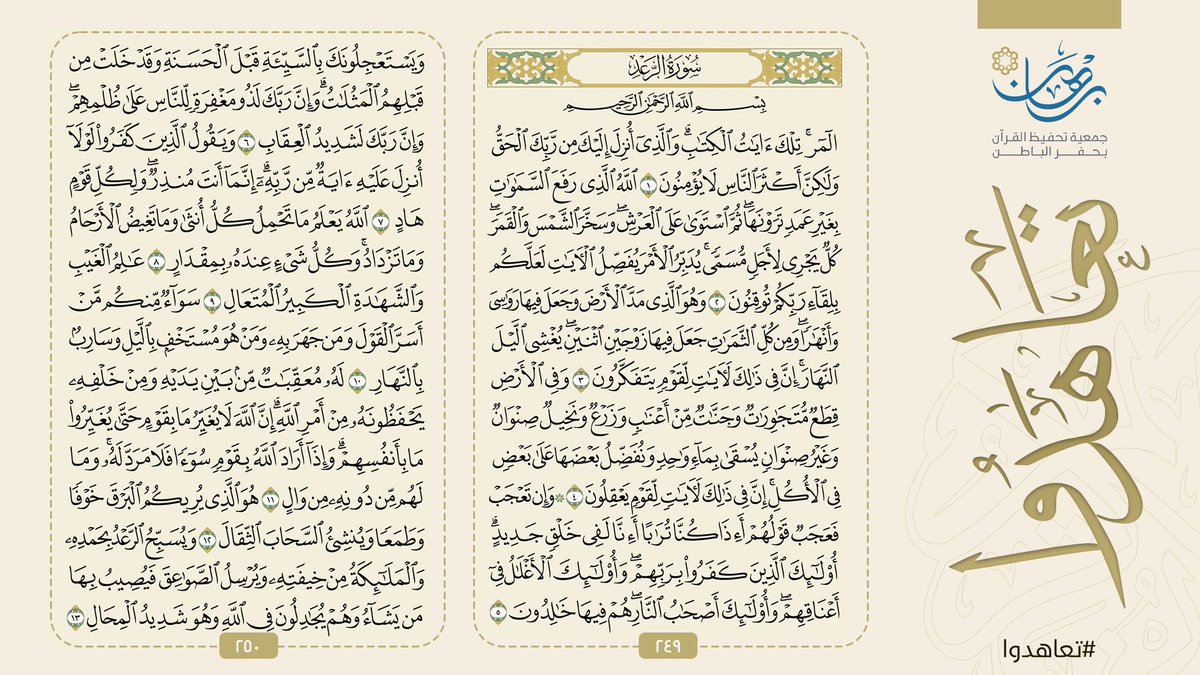 برهان
جمعية تحفيظ القرآن
بحفر الباطن
تعاهدوا
#تعاهدوا
سُورَةُ الرَّعْدِ
بِسْمِ ٱللَّهِ ٱلرَّحْمَٰنِ ٱلرَّحِيمِ
الٓمٓر ۚ تِلْكَ ءَايَٰتُ ٱلْكِتَٰبِ ۗ وَٱلَّذِىٓ أُنزِلَ إِلَيْكَ مِن رَّبِّكَ ٱلْحَقُّ
وَلَٰكِنَّ أَكْثَرَ ٱلنَّاسِ لَا يُؤْمِنُونَ ١ ٱللَّهُ ٱلَّذِى رَفَعَ ٱلسَّمَٰوَٰتِ
بِغَيْرِ عَمَدٍ تَرَوْنَهَا ۖ ثُمَّ ٱسْتَوَىٰ عَلَى ٱلْعَرْشِ ۖ وَسَخَّرَ ٱلشَّمْسَ وَٱلْقَمَرَ ۖ
كُلٌّ يَجْرِى لِأَجَلٍ مُّسَمًّى ۚ يُدَبِّرُ ٱلْأَمْرَ يُفَصِّلُ ٱلْءَايَٰتِ لَعَلَّكُم
بِلِقَآءِ رَبِّكُمْ تُوقِنُونَ ٢ وَهُوَ ٱلَّذِى مَدَّ ٱلْأَرْضَ وَجَعَلَ فِيهَا رَوَٰسِىَ
وَأَنْهَٰرًا ۖ وَمِن كُلِّ ٱلثَّمَرَٰتِ جَعَلَ فِيهَا زَوْجَيْنِ ٱثْنَيْنِ ۖ يُغْشِى ٱلَّيْلَ
ٱلنَّهَارَ ۚ إِنَّ فِى ذَٰلِكَ لَءَايَٰتٍ لِّقَوْمٍ يَتَفَكَّرُونَ ٣ وَفِى ٱلْأَرْضِ
قِطَعٌ مُّتَجَٰوِرَٰتٌ وَجَنَّٰتٌ مِّنْ أَعْنَٰبٍ وَزَرْعٌ وَنَخِيلٌ صِنْوَانٌ
وَغَيْرُ صِنْوَانٍ يُسْقَىٰ بِمَآءٍ وَٰحِدٍ وَنُفَضِّلُ بَعْضَهَا عَلَىٰ بَعْضٍ
فِى ٱلْأُكُلِ ۚ إِنَّ فِى ذَٰلِكَ لَءَايَٰتٍ لِّقَوْمٍ يَعْقِلُونَ ٤ ۞ وَإِن تَعْجَبْ
فَعَجَبٌ قَوْلُهُمْ أَءِذَا كُنَّا تُرَٰبًا أَءِنَّا لَفِى خَلْقٍ جَدِيدٍ ۗ
أُو۟لَٰٓئِكَ ٱلَّذِينَ كَفَرُوا۟ بِرَبِّهِمْ ۖ وَأُو۟لَٰٓئِكَ ٱلْأَغْلَٰلُ فِىٓ
أَعْنَاقِهِمْ ۖ وَأُو۟لَٰٓئِكَ أَصْحَٰبُ ٱلنَّارِ ۖ هُمْ فِيهَا خَٰلِدُونَ ٥
٢٤٩
وَيَسْتَعْجِلُونَكَ بِٱلسَّيِّئَةِ قَبْلَ ٱلْحَسَنَةِ وَقَدْ خَلَتْ مِن
قَبْلِهِمُ ٱلْمَثُلَٰتُ ۗ وَإِنَّ رَبَّكَ لَذُو مَغْفِرَةٍ لِّلنَّاسِ عَلَىٰ ظُلْمِهِمْ ۖ
وَإِنَّ رَبَّكَ لَشَدِيدُ ٱلْعِقَابِ ٦ وَيَقُولُ ٱلَّذِينَ كَفَرُوا۟ لَوْلَآ
أُنزِلَ عَلَيْهِ ءَايَةٌ مِّن رَّبِّهِۦٓ ۗ إِنَّمَآ أَنتَ مُنذِرٌ ۖ وَلِكُلِّ قَوْمٍ
هَادٍ ٧ ٱللَّهُ يَعْلَمُ مَا تَحْمِلُ كُلُّ أُنثَىٰ وَمَا تَغِيضُ ٱلْأَرْحَامُ
وَمَا تَزْدَادُ ۖ وَكُلُّ شَىْءٍ عِندَهُۥ بِمِقْدَارٍ ٨ عَٰلِمُ ٱلْغَيْبِ
وَٱلشَّهَٰدَةِ ٱلْكَبِيرُ ٱلْمُتَعَالِ ٩ سَوَآءٌ مِّنكُم مَّنْ
أَسَرَّ ٱلْقَوْلَ وَمَن جَهَرَ بِهِۦ وَمَنْ هُوَ مُسْتَخْفٍۭ بِٱلَّيْلِ وَسَارِبٌۢ
بِٱلنَّهَارِ ١٠ لَهُۥ مُعَقِّبَٰتٌ مِّنۢ بَيْنِ يَدَيْهِ وَمِنْ خَلْفِهِۦ
يَحْفَظُونَهُۥ مِنْ أَمْرِ ٱللَّهِ ۗ إِنَّ ٱللَّهَ لَا يُغَيِّرُ مَا بِقَوْمٍ حَتَّىٰ يُغَيِّرُوا۟
مَا بِأَنفُسِهِمْ ۗ وَإِذَآ أَرَادَ ٱللَّهُ بِقَوْمٍ سُوٓءًا فَلَا مَرَدَّ لَهُۥ ۚ وَمَا
لَهُم مِّن دُونِهِۦ مِن وَالٍ ١١ هُوَ ٱلَّذِى يُرِيكُمُ ٱلْبَرْقَ خَوْفًا
وَطَمَعًا وَيُنشِئُ ٱلسَّحَابَ ٱلثِّقَالَ ١٢ وَيُسَبِّحُ ٱلرَّعْدُ بِحَمْدِهِۦ
وَٱلْمَلَٰٓئِكَةُ مِنْ خِيفَتِهِۦ وَيُرْسِلُ ٱلصَّوَٰعِقَ فَيُصِيبُ بِهَا
مَن يَشَآءُ وَهُمْ يُجَٰدِلُونَ فِى ٱللَّهِ وَهُوَ شَدِيدُ ٱلْمِحَالِ ١٣
٢٥٠